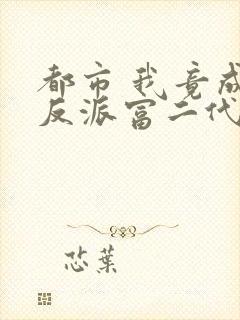 都市我竟成
反派富二代
芯葉